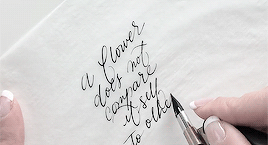 a flower
does not
compare
it self
to othe